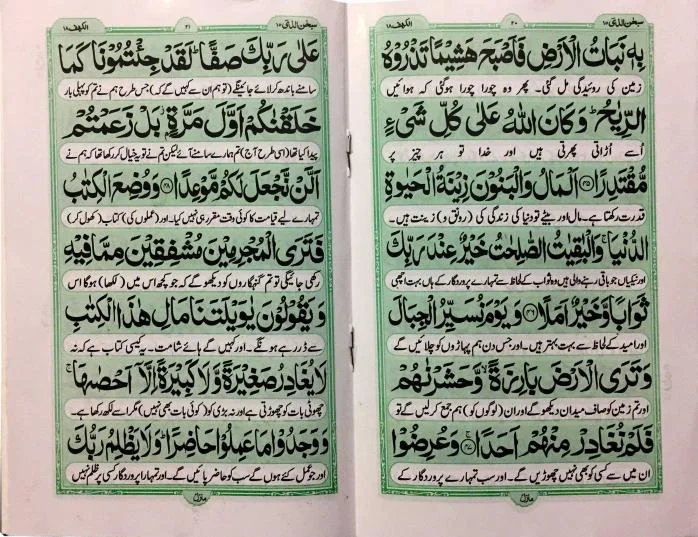 سبحٰن الذی ۱۵
۲۰
الکھف ۱۸
بِهٖ نَبَاتُ الْاَرْضِ فَاَصْبَحَ هَشِيْمًا تَذْرُوْهُ
زمین کی روئیدگی مل گئی۔ پھر وہ چورا چورا ہوگئی کہ ہوائیں
الرِّيٰحُ ؕ وَكَانَ اللّٰهُ عَلٰى كُلِّ شَىْءٍ
اُسے اُڑاتی پھرتی ہیں اور خدا تو ہر چیز پر
مُّقْتَدِرًا ﴿۴۵﴾ اَلْمَالُ وَالْبَنُوْنَ زِيْنَةُ الْحَيٰوةِ
قدرت رکھتا ہے۔ مال اور بیٹے تو دنیا کی زندگی کی (رونق و) زینت ہیں۔
الدُّنْيَا ۚ وَالْبٰقِيٰتُ الصّٰلِحٰتُ خَيْرٌ عِنْدَ رَبِّكَ
اور نیکیاں جو باقی رہنے والی ہیں وہ ثواب کے لحاظ سے تمہارے پروردگار کے ہاں بہت اچھی
ثَوَابًا وَّخَيْرٌ اَمَلًا ﴿۴۶﴾ وَيَوْمَ نُسَيِّرُ الْجِبَالَ
اور امید کے لحاظ سے بہت بہتر ہیں۔ اور جس دن ہم پہاڑوں کو چلائیں گے
وَتَرَى الْاَرْضَ بَارِزَةً ۙ وَّحَشَرْنٰهُمْ
اور تم زمین کو صاف میدان دیکھو گے اور ان (لوگوں کو) ہم جمع کرلیں گے تو
فَلَمْ نُغَادِرْ مِنْهُمْ اَحَدًا ﴿۴۷﴾ وَعُرِضُوْا
ان میں سے کسی کو بھی نہیں چھوڑیں گے۔ اور سب تمہارے پروردگار کے
منزل
سبحٰن الذی ۱۵
۲۱
الکھف ۱۸
عَلٰى رَبِّكَ صَفًّا ؕ لَقَدْ جِئْتُمُوْنَا كَمَا
سامنے باندھ کر لائے جائینگے (تو ہم ان سے کہیں گے کہ) جس طرح ہم نے تم کو پہلی بار
خَلَقْنٰكُمْ اَوَّلَ مَرَّةٍۢ ؗ بَلْ زَعَمْتُمْ
پیدا کیا تھا (اسی طرح آج) تم ہمارے سامنے آئے لیکن تم نے تو یہ خیال کر رکھا تھا کہ ہم نے
اَلَّنْ نَّجْعَلَ لَكُمْ مَّوْعِدًا ﴿۴۸﴾ وَوُضِعَ الْكِتٰبُ
تمہارے لیے قیامت کا کوئی وقت مقرر ہی نہیں کیا۔ اور (عملوں کی) کتاب (کھول کر)
فَتَرَى الْمُجْرِمِيْنَ مُشْفِقِيْنَ مِمَّا فِيْهِ
رکھی جائیگی تو تم گنہگاروں کو دیکھو گے کہ جو کچھ اس میں (لکھا) ہوگا اس
وَيَقُوْلُوْنَ يٰوَيْلَتَنَا مَالِ هٰذَا الْكِتٰبِ
سے ڈر رہے ہونگے۔ اور کہیں گے ہائے شامت۔ یہ کیسی کتاب ہے کہ نہ
لَا يُغَادِرُ صَغِيْرَةً وَّلَا كَبِيْرَةً اِلَّاۤ اَحْصٰىهَا ۚ
چھوٹی بات کو چھوڑتی ہے اور نہ بڑی کو (کوئی بات بھی نہیں) مگر اسے لکھ رکھا ہے۔
وَوَجَدُوْا مَا عَمِلُوْا حَاضِرًا ؕ وَلَا يَظْلِمُ رَبُّكَ
اور جو عمل کئے ہوں گے سب کو حاضر پائیں گے۔ اور تمہارا پروردگار کسی پر ظلم نہیں
منزل